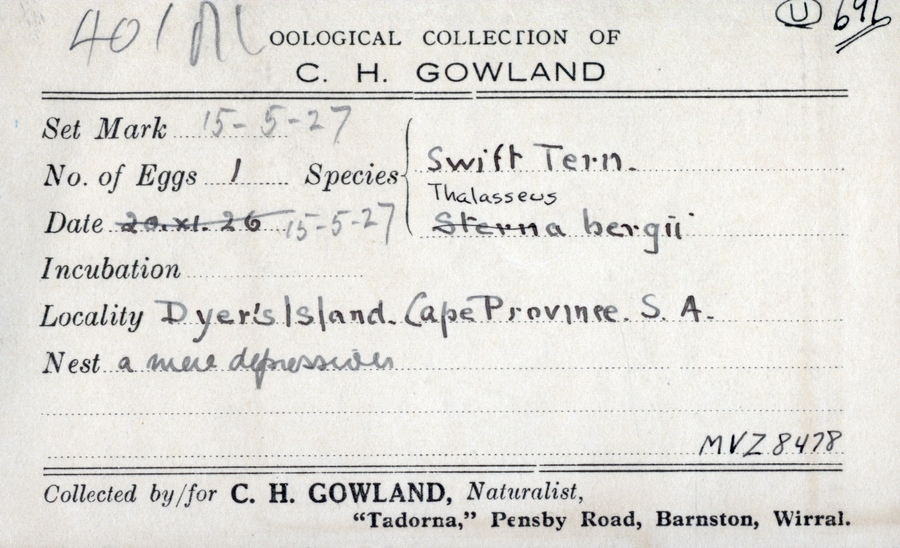 401 (U) 691
OOLOGICAL COLLECTION OF
C. H. GOWLAND
Set Mark 15-5-27
No. of Eggs 1 Species Swift Tern.
Thalasseus
Date 20.XI.26 15-5-27 Sterna bergii
Incubation
Locality Dyer's Island. Cape Province. S. A.
Nest a mere depression
MVZ 8478
Collected by/for C. H. GOWLAND, Naturalist,
"Tadorna," Pensby Road, Barnston, Wirral.